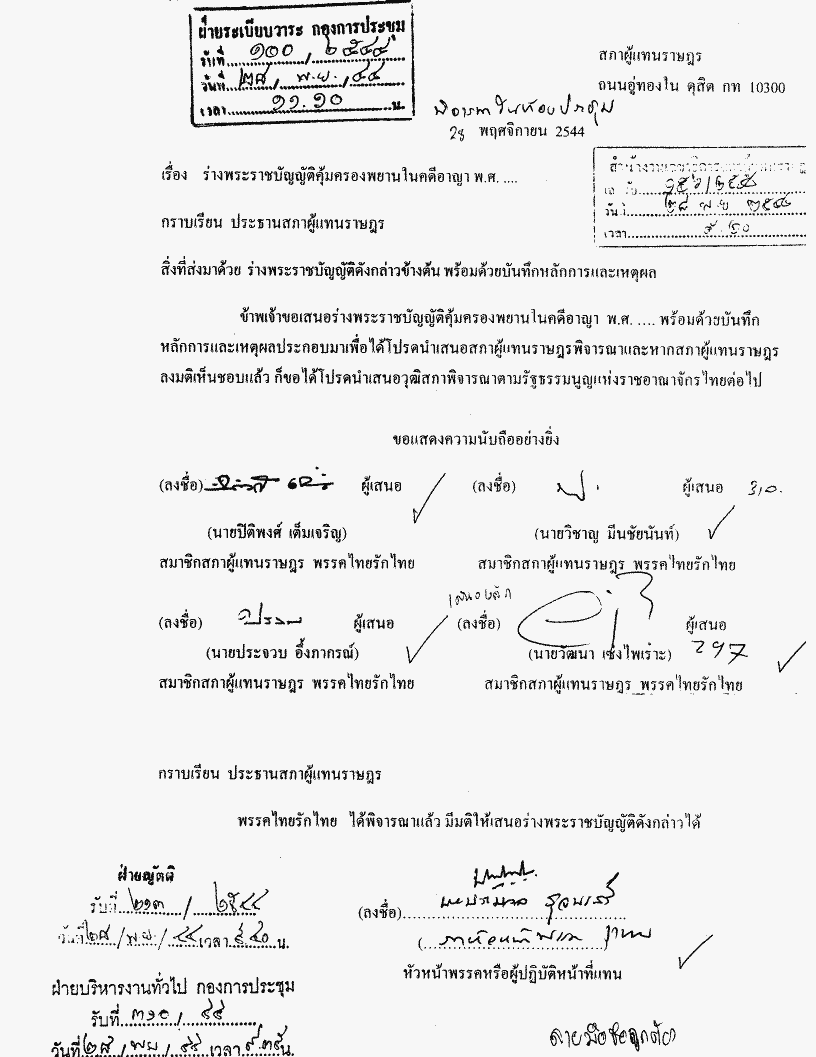 ฝ่ายระเบียบวาระ กองการประชุม
รับที่ ๑๐๐ / ๒๕๔๔
วันที่ ๒๘ / พ.ย. / ๔๔
เวลา ๑๑.๑๐ น.
สภาผู้แทนราษฎร
ถนนอู่ทองใน ดุสิต กท 10300
28 พฤศจิกายน 2544
เรื่อง ร่างพระราชบัญญัติคุ้มครองพยานในคดีอาญา พ.ศ. ....
วันที่ ๒๘ พ.ย. ๒๕๔๔
เวลา
กราบเรียน ประธานสภาผู้แทนราษฎร
สิ่งที่ส่งมาด้วย ร่างพระราชบัญญัติดังกล่าวข้างต้น พร้อมด้วยบันทึกหลักการและเหตุผล
ข้าพเจ้าขอเสนอร่างพระราชบัญญัติคุ้มครองพยานในคดีอาญา พ.ศ. .... พร้อมด้วยบันทึก
หลักการและเหตุผลประกอบมาเพื่อได้โปรดนำเสนอสภาผู้แทนราษฎรพิจารณาและหากสภาผู้แทนราษฎร
ลงมติเห็นชอบแล้ว ก็ขอได้โปรดนำเสนอวุฒิสภาพิจารณาตามรัฐธรรมนูญแห่งราชอาณาจักรไทยต่อไป
ขอแสดงความนับถืออย่างยิ่ง
(ลงชื่อ) ผู้เสนอ (ลงชื่อ) ผู้เสนอ 310.
(นายปิติพงศ์ เต็มเจริญ) (นายวิชาญ มีนชัยนันท์)
สมาชิกสภาผู้แทนราษฎร พรรคไทยรักไทย สมาชิกสภาผู้แทนราษฎร พรรคไทยรักไทย
(ลงชื่อ) ผู้เสนอ (ลงชื่อ) ผู้เสนอ
(นายประจวบ อึ๊งภากรณ์) (นายวัฒนา เซ่งไพเราะ) 297
สมาชิกสภาผู้แทนราษฎร พรรคไทยรักไทย สมาชิกสภาผู้แทนราษฎร พรรคไทยรักไทย
กราบเรียน ประธานสภาผู้แทนราษฎร
พรรคไทยรักไทย ได้พิจารณาแล้ว มีมติให้เสนอร่างพระราชบัญญัติดังกล่าวได้
ฝ่ายญัตติ
รับที่ ๒๑๓ / ๒๕๔๔
วันที่ ๒๘ / พ.ย. / ๔๔ เวลา ๙.๔๐ น.
(ลงชื่อ)
หัวหน้าพรรคหรือผู้ปฏิบัติหน้าที่แทน
ฝ่ายบริหารงานทั่วไป กองการประชุม
รับที่ ๓๑๐ / ๔๔
วันที่ ๒๘ / พ.ย. / ๔๔ เวลา ๙.๓๕ น.